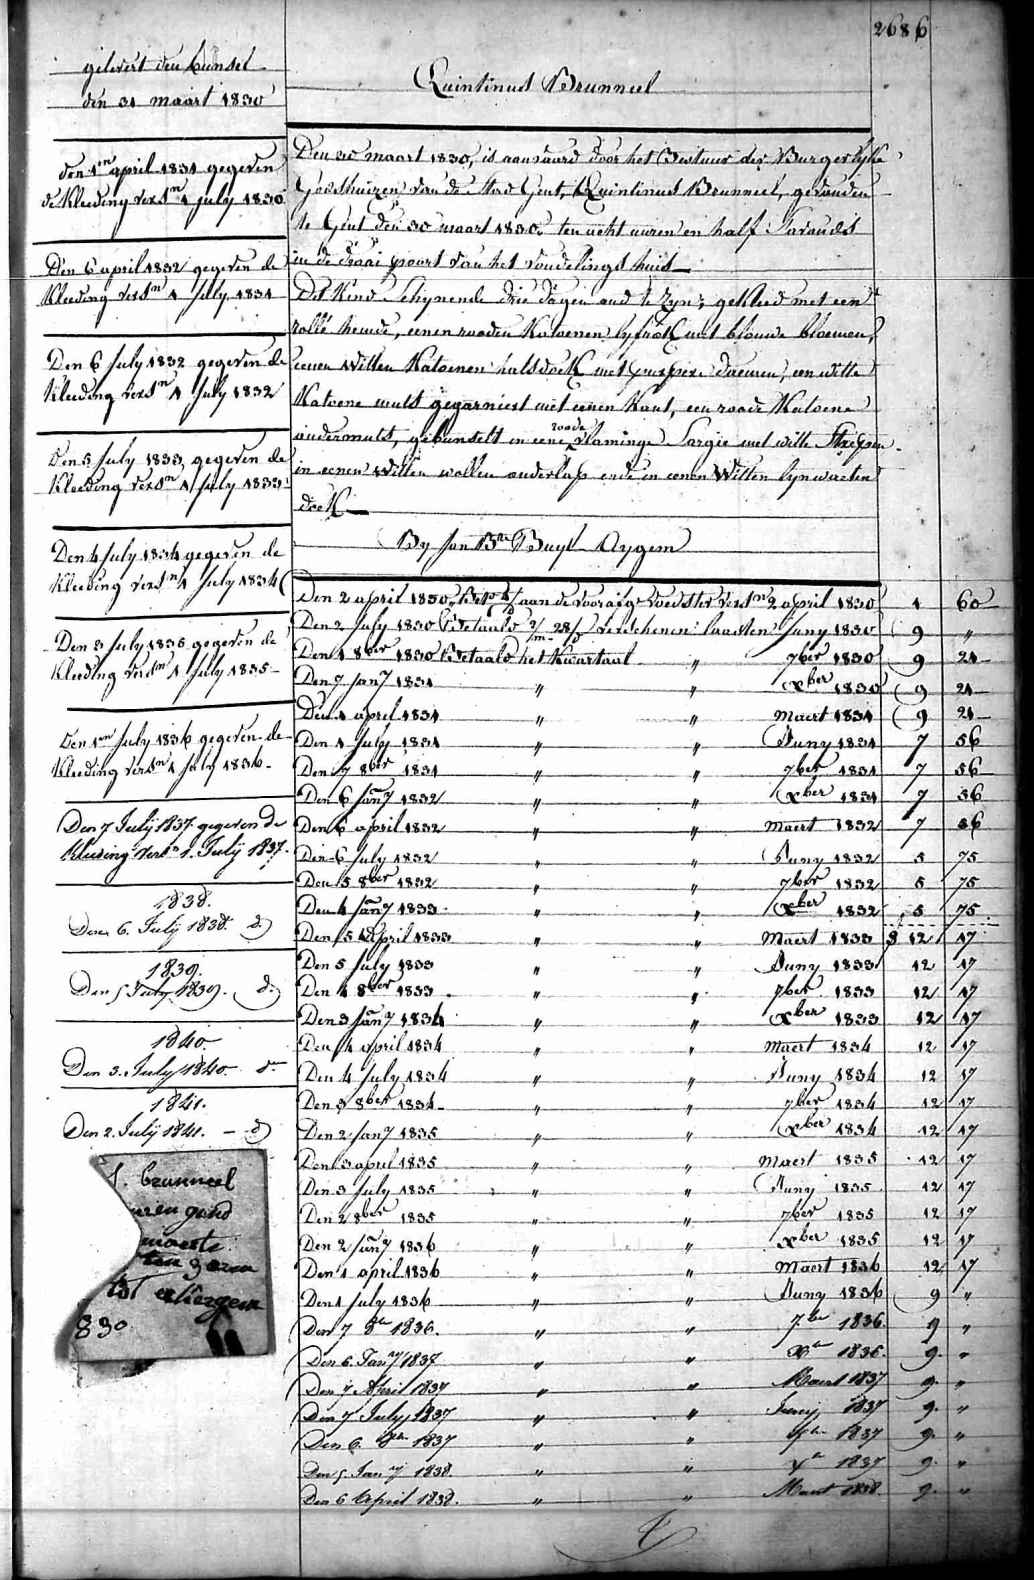 2686
gelevert den bunsel
den 31 maart 1830
Quintinus Brunneel
den 1en april 1831 gegeven
de Kleeding versn 1 july 1830
Den 6 april 1832 gegeven de
Kleeding versn 1 July 1831
Den 6 July 1832 gegeven de
Kleeding versn 1 July 1832
Den 5 July 1833 gegeven de
Kleeding versn 1 July 1833
Den 4 July 1834 gegeven de
Kleeding versn 1 July 1834
Den 3 July 1835 gegeven de
Kleeding versn 1 July 1835
Den 1en July 1836 gegeven de
Kleeding versn 1 July 1836
Den 7 Julij 1837 gegeven de
Kleeding versn 1. Julij 1837.
1838.
Den 6. Julij 1838. do
1839.
Den 5 July 1839. do
1840.
Den 3. July 1840. do
1841.
Den 2. Julij 1841. — do
brunneel
gand
maerte
ten 3 eren
tot erliergem
830
Den 30 maart 1830, is aanvaard door het Bestuur der Burgerlyke
Godshuizen van de Stad Gent, Quintinus Brunneel, gevonden
te Gent den 30 maart 1830 ten acht uuren en half 's avonds
in de draai poort van het vondelingshuis
Dit Kind schijnende drie dagen oud te zyn, gekleed met een
rolle hemde, eenen rooden Katoenen lyfrok met blouwe bloemen,
eenen witten Katoenen halsdoek met purpere daemen, een witte
Katoene muts gegarniert met eenen Kant, een roode Katoene
ondermuts, gebunselt in eene roode vlaminge Sargie met witte Strepen
in eenen witten wollen onderlap ende in eenen witten lynwaeten
doek
By Jan Bte Buyl Aygem
Den 2 april 1830 aan de voorzorge voedster versn 2 april 1830 1 60
Den 2 July 1830 Betaald 2/m 28/d verschenen laasten Juny 1830 9 "
Den 1 8ber 1830 Betaald het Kwartaal " 7ber 1830 9 21
Den 7 Jany 1831 " " Xber 1830 9 21
Den 1 april 1831 " " Maert 1831 9 21
Den 1 July 1831 " " Juny 1831 7 56
Den 7 8ber 1831 " " 7ber 1831 7 56
Den 6 Jany 1832 " " Xber 1831 7 56
Den 6 april 1832 " " Maert 1832 7 56
Den 6 July 1832 " " Juny 1832 5 75
Den 5 8ber 1832 " " 7ber 1832 5 75
Den 4 Jany 1833 " " Xber 1832 5 75
Den 5 April 1833 " " Maert 1833 12 17
Den 5 July 1833 " " Juny 1833 12 17
Den 4 8ber 1833 " " 7ber 1833 12 17
Den 3 Jany 1834 " " Xber 1833 12 17
Den 4 april 1834 " " Maert 1834 12 17
Den 4 July 1834 " " Juny 1834 12 17
Den 3 8ber 1834 " " 7ber 1834 12 17
Den 2 Jany 1835 " " Xber 1834 12 17
Den 3 april 1835 " " Maert 1835 12 17
Den 3 July 1835 " " Juny 1835 12 17
Den 2 8ber 1835 " " 7ber 1835 12 17
Den 2 Jany 1836 " " Xber 1835 12 17
Den 1 april 1836 " " Maert 1836 12 17
Den 1 July 1836 " " Juny 1836 9 "
Den 7 8er 1836. " " 7ber 1836. 9 "
Den 6. Jany 1837 " " Xer 1836. 9. "
Den 7 April 1837 " " Maert 1837 9. "
Den 7 July 1837 " " Junij 1837 9. "
Den 6. 8er 1837 " " 7er 1837 9. "
Den 5. Jany 1838. " " Xer 1837 9. "
Den 6 April 1838. " " Maert 1838. 9. "